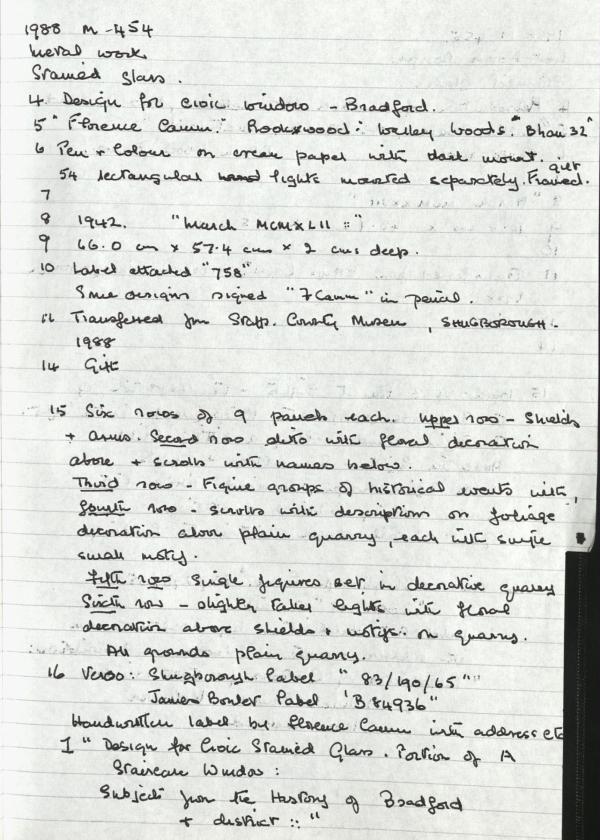 1988 M-454
Metal work
Stained Glass.
4 Design for civic window - Bradford.
5 "Florence Camm." Rookswood: Wylley Woods. "Bham 32"
6 Pen + Colour on cream paper with dark mount. gilt
54 rectangular lights mounted separately. Framed.
7
8 1942. "March MCMXLII :"
9 66.0 cm x 57.4 cms x 2 cms deep.
10 Label attached "758"
Some designs signed "F Camm" in pencil.
11 Transferred from Staffs. County Museum, SHUGBOROUGH.
1988
14 Gift
15 Six rows of 9 panels each. Upper row - Shields
+ arms. Second row ditto with floral decoration
above + scrolls with names below.
Third row - Figure groups of historical events with,
fourth row - scrolls with descriptions on foliage
decoration above plain quarry, each with single
small motif.
Fifth row single figures set in decorative quarry
Sixth row - slightly taller lights with floral
decoration above shields + motifs on quarry.
All grounds plain quarry.
16 Verso: Shugborough Label "83/190/65"
James Bourlet Label "B84936"
Handwritten label by Florence Camm with address etc
1 "Design for Civic Stained Glass. Portion of A
Staircase Window:
Subjects from the History of Bradford
+ district :: "